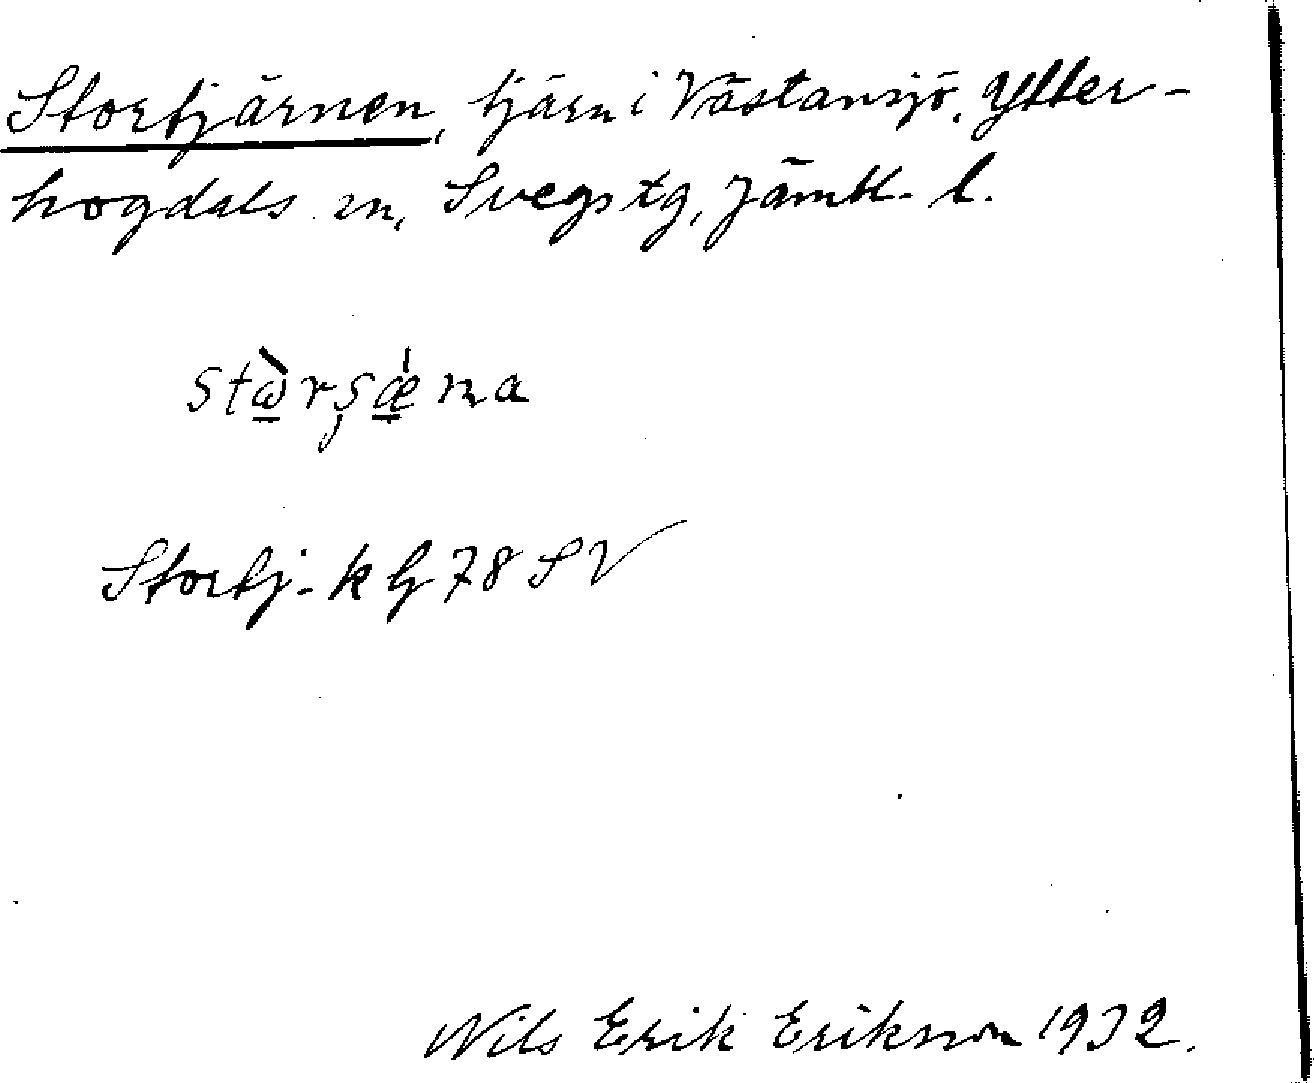 Stortjärnen, tjärn i Västansjö, Ytter-
hogdals sn, Svegs tg, Jämtl. l.
stὼ̲rşǽ̲na
Stortj. k G 78 SV
Nils Erik Eriksson 1932.